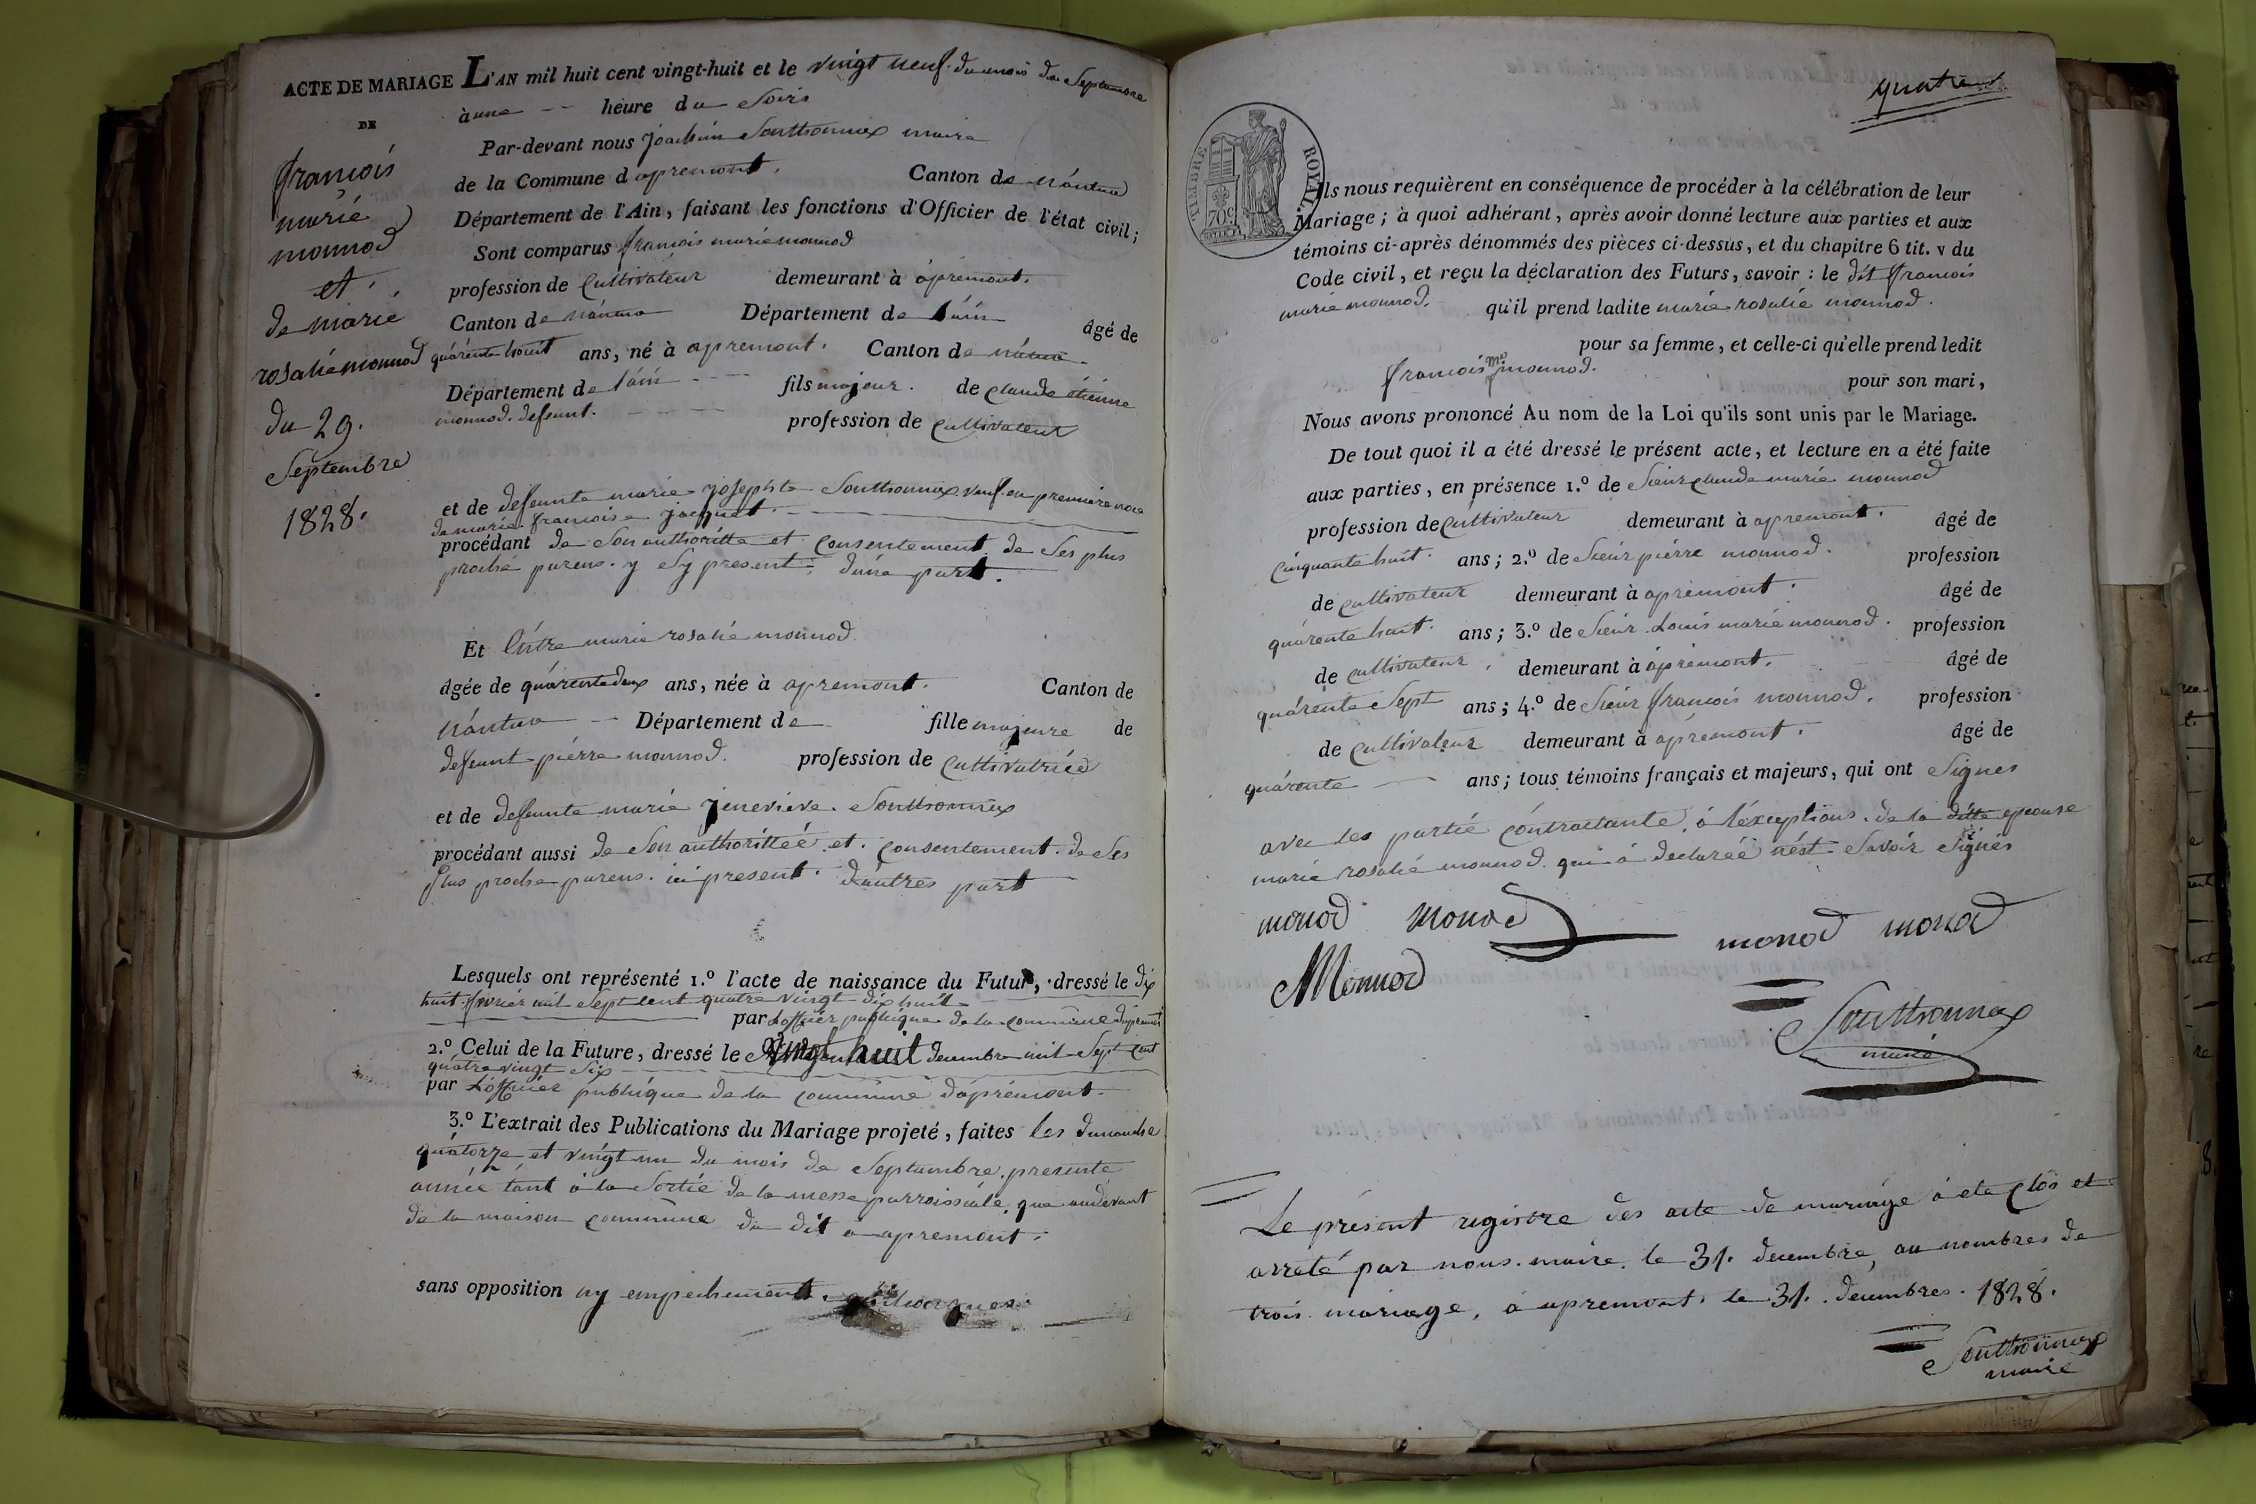 ACTE DE MARIAGE L'AN mil huit cent vingt-huit et le vingt neuf du mois de Septembre
DE
à une heure du Soirs
Par-devant nous joachim Southonnax maire
de la Commune d apremont. Canton de nántua
Département de l'Ain, faisant les fonctions d'Officier de l'état civil;
Sont comparus francois marie monnod
profession de Cultivateur demeurant à apremont.
Canton de nántua Département de láin âgé de
quárente huit ans, né à apremont. Canton de nántua
Département de láin fils majeur. de claude étiénne
monnod. deffunt. profession de Cultivateur
et de deffunte marie josephte Southonnax veuf en premiere noce
de marie francoise jacquet.
procédant de Son authoritte et consentement de Ses plus
proche parens. y Sy present; d'une part.
francois
marie
monnod
et
de marie
rosalie monnod
du 29.
Septembre
1828.
Et marie rosalie monnod
âgée de quárente deux ans, née à apremont. Canton de
nántua Département de fille majeure de
deffunt piérre monnod. profession de Cultivatrice
et de deffunte marie jeneviève Southonnax
procédant aussi de Son authorittéé et consentement de Ses
plus proche parens. ici present. d'autres part
Lesquels ont représenté 1.º l'acte de naissance du Futur, dressé le dix
huit fevrier mil Sept cent quatre vingt dix huit
par Lofficiér publique de la commune dapremont
2.º Celui de la Future, dressé le vingt huit decembre mil Sept cent
quátre vingt Six
par Lofficiér publique de la commune d'apremont.
3.º L'extrait des Publications du Mariage projeté, faites les dimanche
quátorze et vingt un du mois de Septembre. presente
année tánt à la Sortie de la messe parroissiále que audevant
de la maison commune du dit à apremont.
sans opposition ny empechement.
quatre
TIMBRE ROYAL
70 c
Ils nous requièrent en conséquence de procéder à la célébration de leur
Mariage; à quoi adhérant, après avoir donné lecture aux parties et aux
témoins ci-après dénommés des pièces ci-dessus, et du chapitre 6 tit. v du
Code civil, et reçu la déclaration des Futurs, savoir: le dit francois
marie monnod. qu'il prend ladite marie rosalie monnod.
pour sa femme, et celle-ci qu'elle prend ledit
francois me monnod. pour son mari,
Nous avons prononcé Au nom de la Loi qu'ils sont unis par le Mariage.
De tout quoi il a été dressé le présent acte, et lecture en a été faite
aux parties, en présence 1.º de Sieur claude marie monnod
profession de Cultivateur demeurant à apremont. âgé de
Cinquante huit ans; 2.º de Sieur piérre monnod. profession
de cultivateur demeurant à apremont. âgé de
quárente huit ans; 3.º de Sieur Louis marie monnod. profession
de cultivateur, demeurant à apremont. âgé de
quárente Sept ans; 4.º de Sieur françois monnod. profession
de cultivateur demeurant à apremont. âgé de
quárente ans; tous témoins français et majeurs, qui ont Signes
avec les partie contractante, à l'exceptions de la ditte epouse
marie rosalie monnod. qui à declaréé nést Savoir Signés
monod monod monod monod
Monnod
Southonnax
maire
Le présent registre des acte de mariage à eta clôs et
arrêté par nous. maire. le 31. decembre, au nombres de
trois mariage, à apremont. le 31. decembres. 1828.
Southonnax
maire